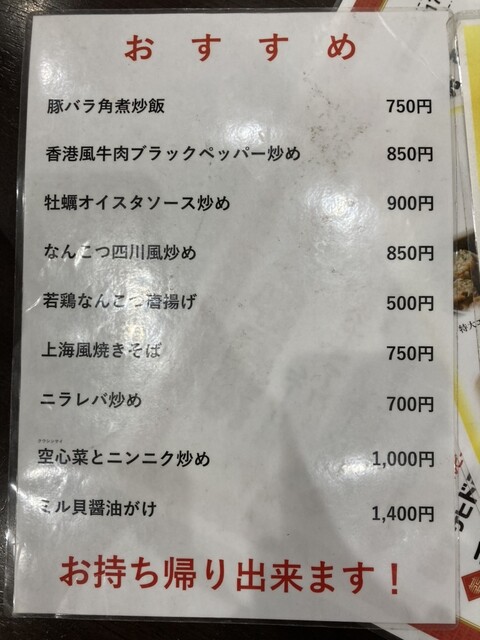 おすすめ
豚バラ角煮炒飯 750円
香港風牛肉ブラックペッパー炒め 850円
牡蠣オイスタソース炒め 900円
なんこつ四川風炒め 850円
若鶏なんこつ唐揚げ 500円
上海風焼きそば 750円
ニラレバ炒め 700円
クウシンサイ
空心菜とニンニク炒め 1,000円
ミル貝醤油がけ 1,400円
お持ち帰り出来ます！
特大